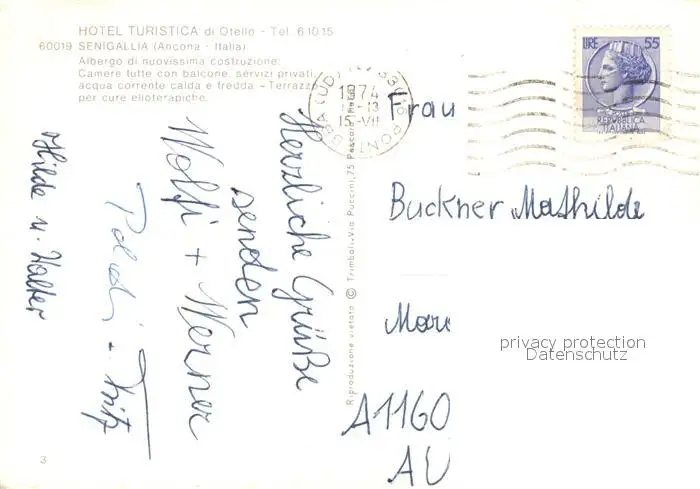 HOTEL TURISTICA di Otello - Tel. 61015
60019 SENIGALLIA (Ancona - Italia)
Albergo di nuovissima costruzione.
Camere tutte con balcone, servizi privati,
acqua corrente calda e fredda - Terrazze
per cure elioterapiche.
LIRE 55
REPVBBLICA
ITALIANA
1974
15-VII
Frau
Buckner Mathilde
privacy protection
Datenschutz
A1160
AU
Herzliche Grüße
senden
Wolfi + Werner
Fritz
Hilde u. Walter
Riproduzione vietata © Trimboli, Via Puccini, 75 Pescara
3